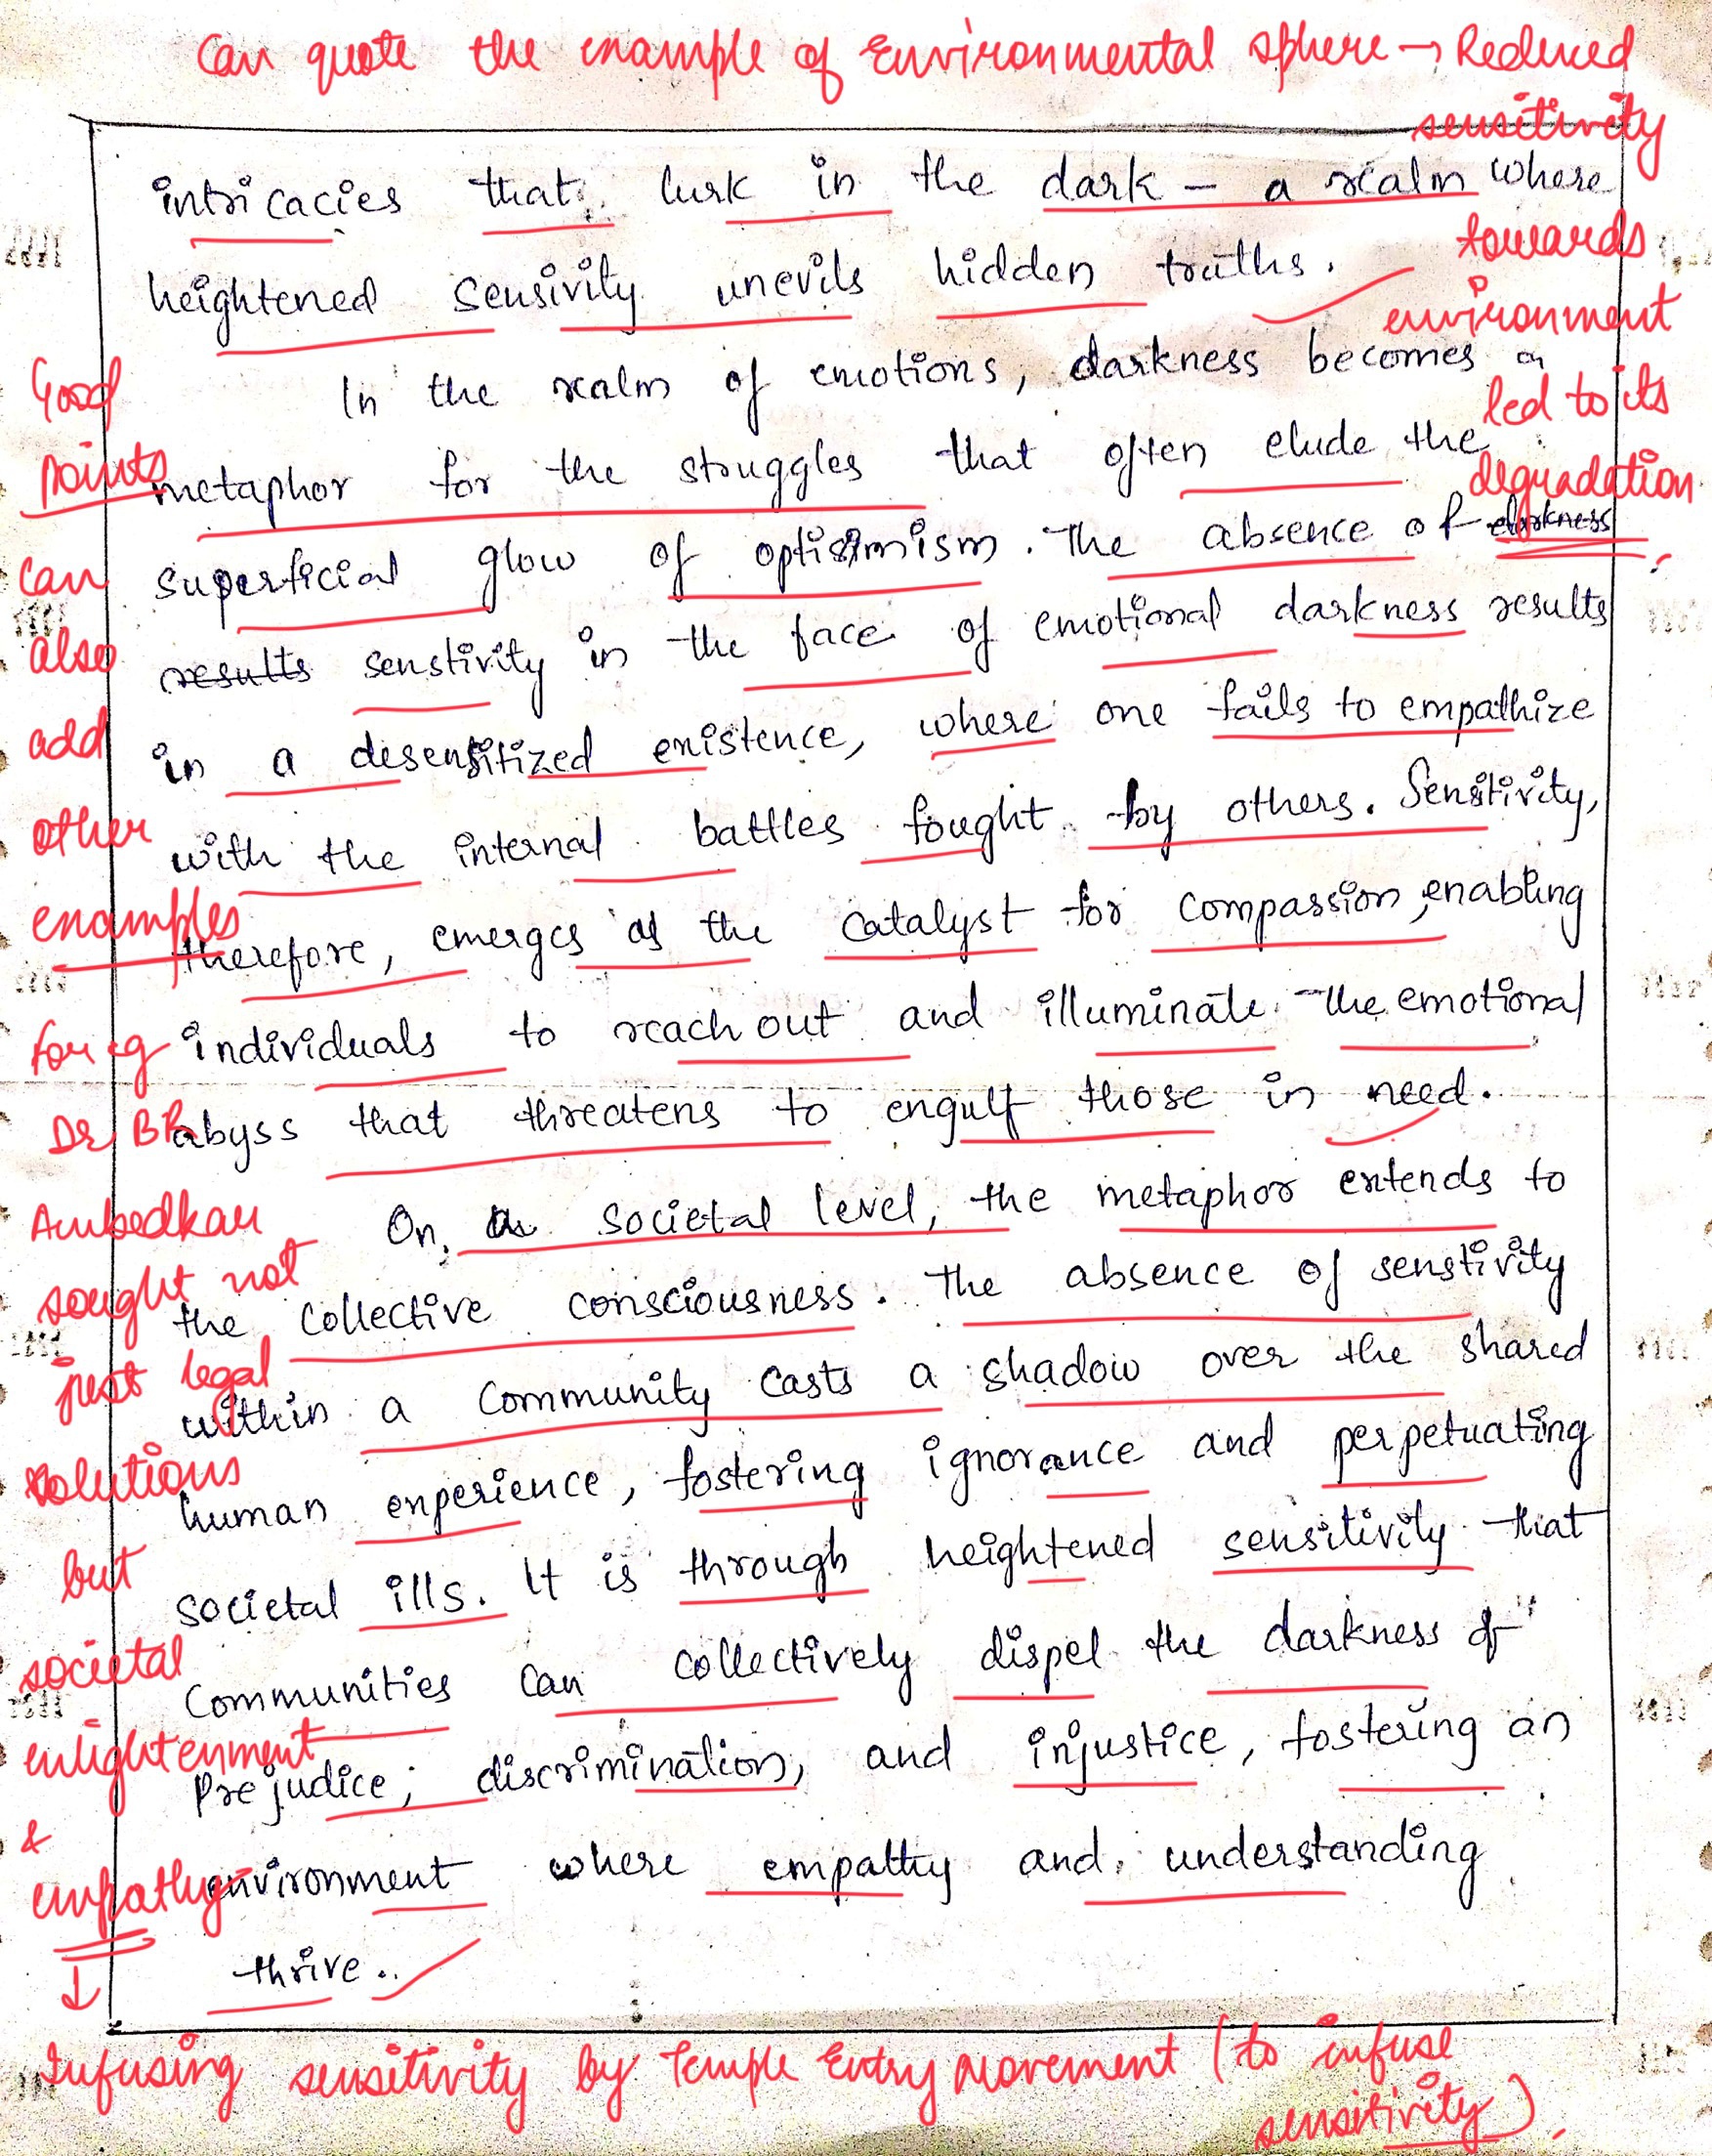 Can quote the example of Environmental sphere → Reduced
sensitivity
towards
environment
led to its
degradation
intricacies that lurk in the dark – a realm where
heightened Sensivity unevils hidden truths.
In the realm of emotions, darkness becomes a
metaphor for the struggles that often elude the
superficial glow of optisimism. The absence of darkness
results senstivity in the face of emotional darkness results
in a desensitized existence, where one fails to empathize
with the internal battles fought by others. Sensitivity,
therefore, emerges as the catalyst for compassion, enabling
individuals to reach out and illuminate the emotional
abyss that threatens to engulf those in need.
On a societal level, the metaphor extends to
the collective consciousness. The absence of senstivity
within a community casts a shadow over the shared
human experience, fostering ignorance and perpetuating
societal ills. It is through heightened sensitivity that
Communities can collectively dispel the darkness of
Prejudice, discrimination, and injustice, fostering an
environment where empathy and understanding
thrive.
Good
points
can
also
add
other
examples
for eg
Dr BR
Ambedkar
sought not
just legal
solutions
but
societal
enlightenment
&
empathy
↓
Infusing sensitivity by Temple Entry Movement (to infuse
sensitivity).